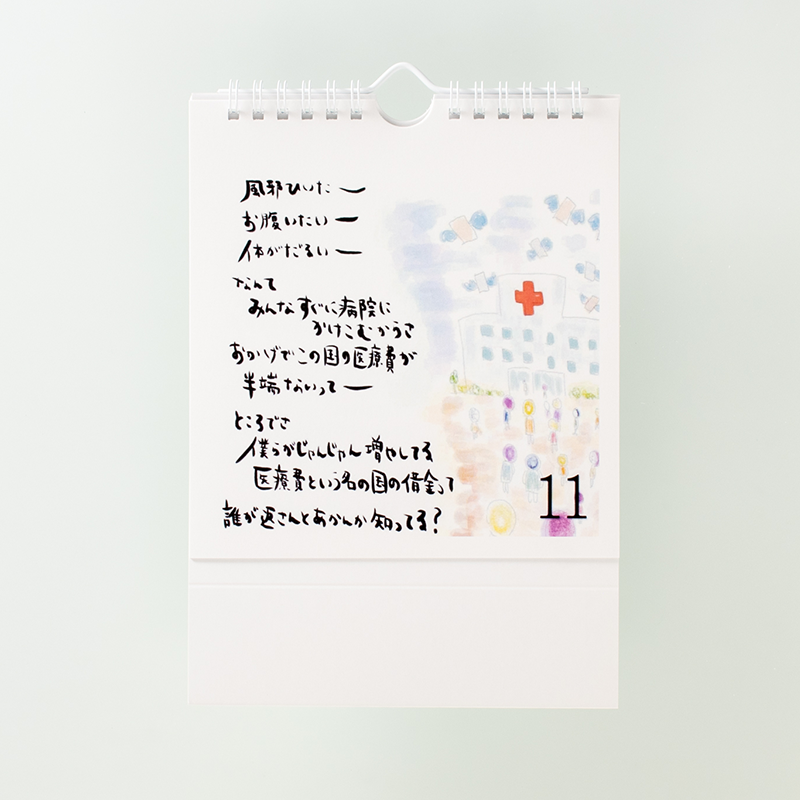 風邪ひいたー
お腹いたいー
体がだるいー
なんて
みんなすぐに病院に
かけこむからさ
おかげでこの国の医療費が
半端ないってー
ところでさ
僕らがじゃんじゃん増やしてる
医療費という名の国の借金って
誰が返さんとあかんか知ってる?
11